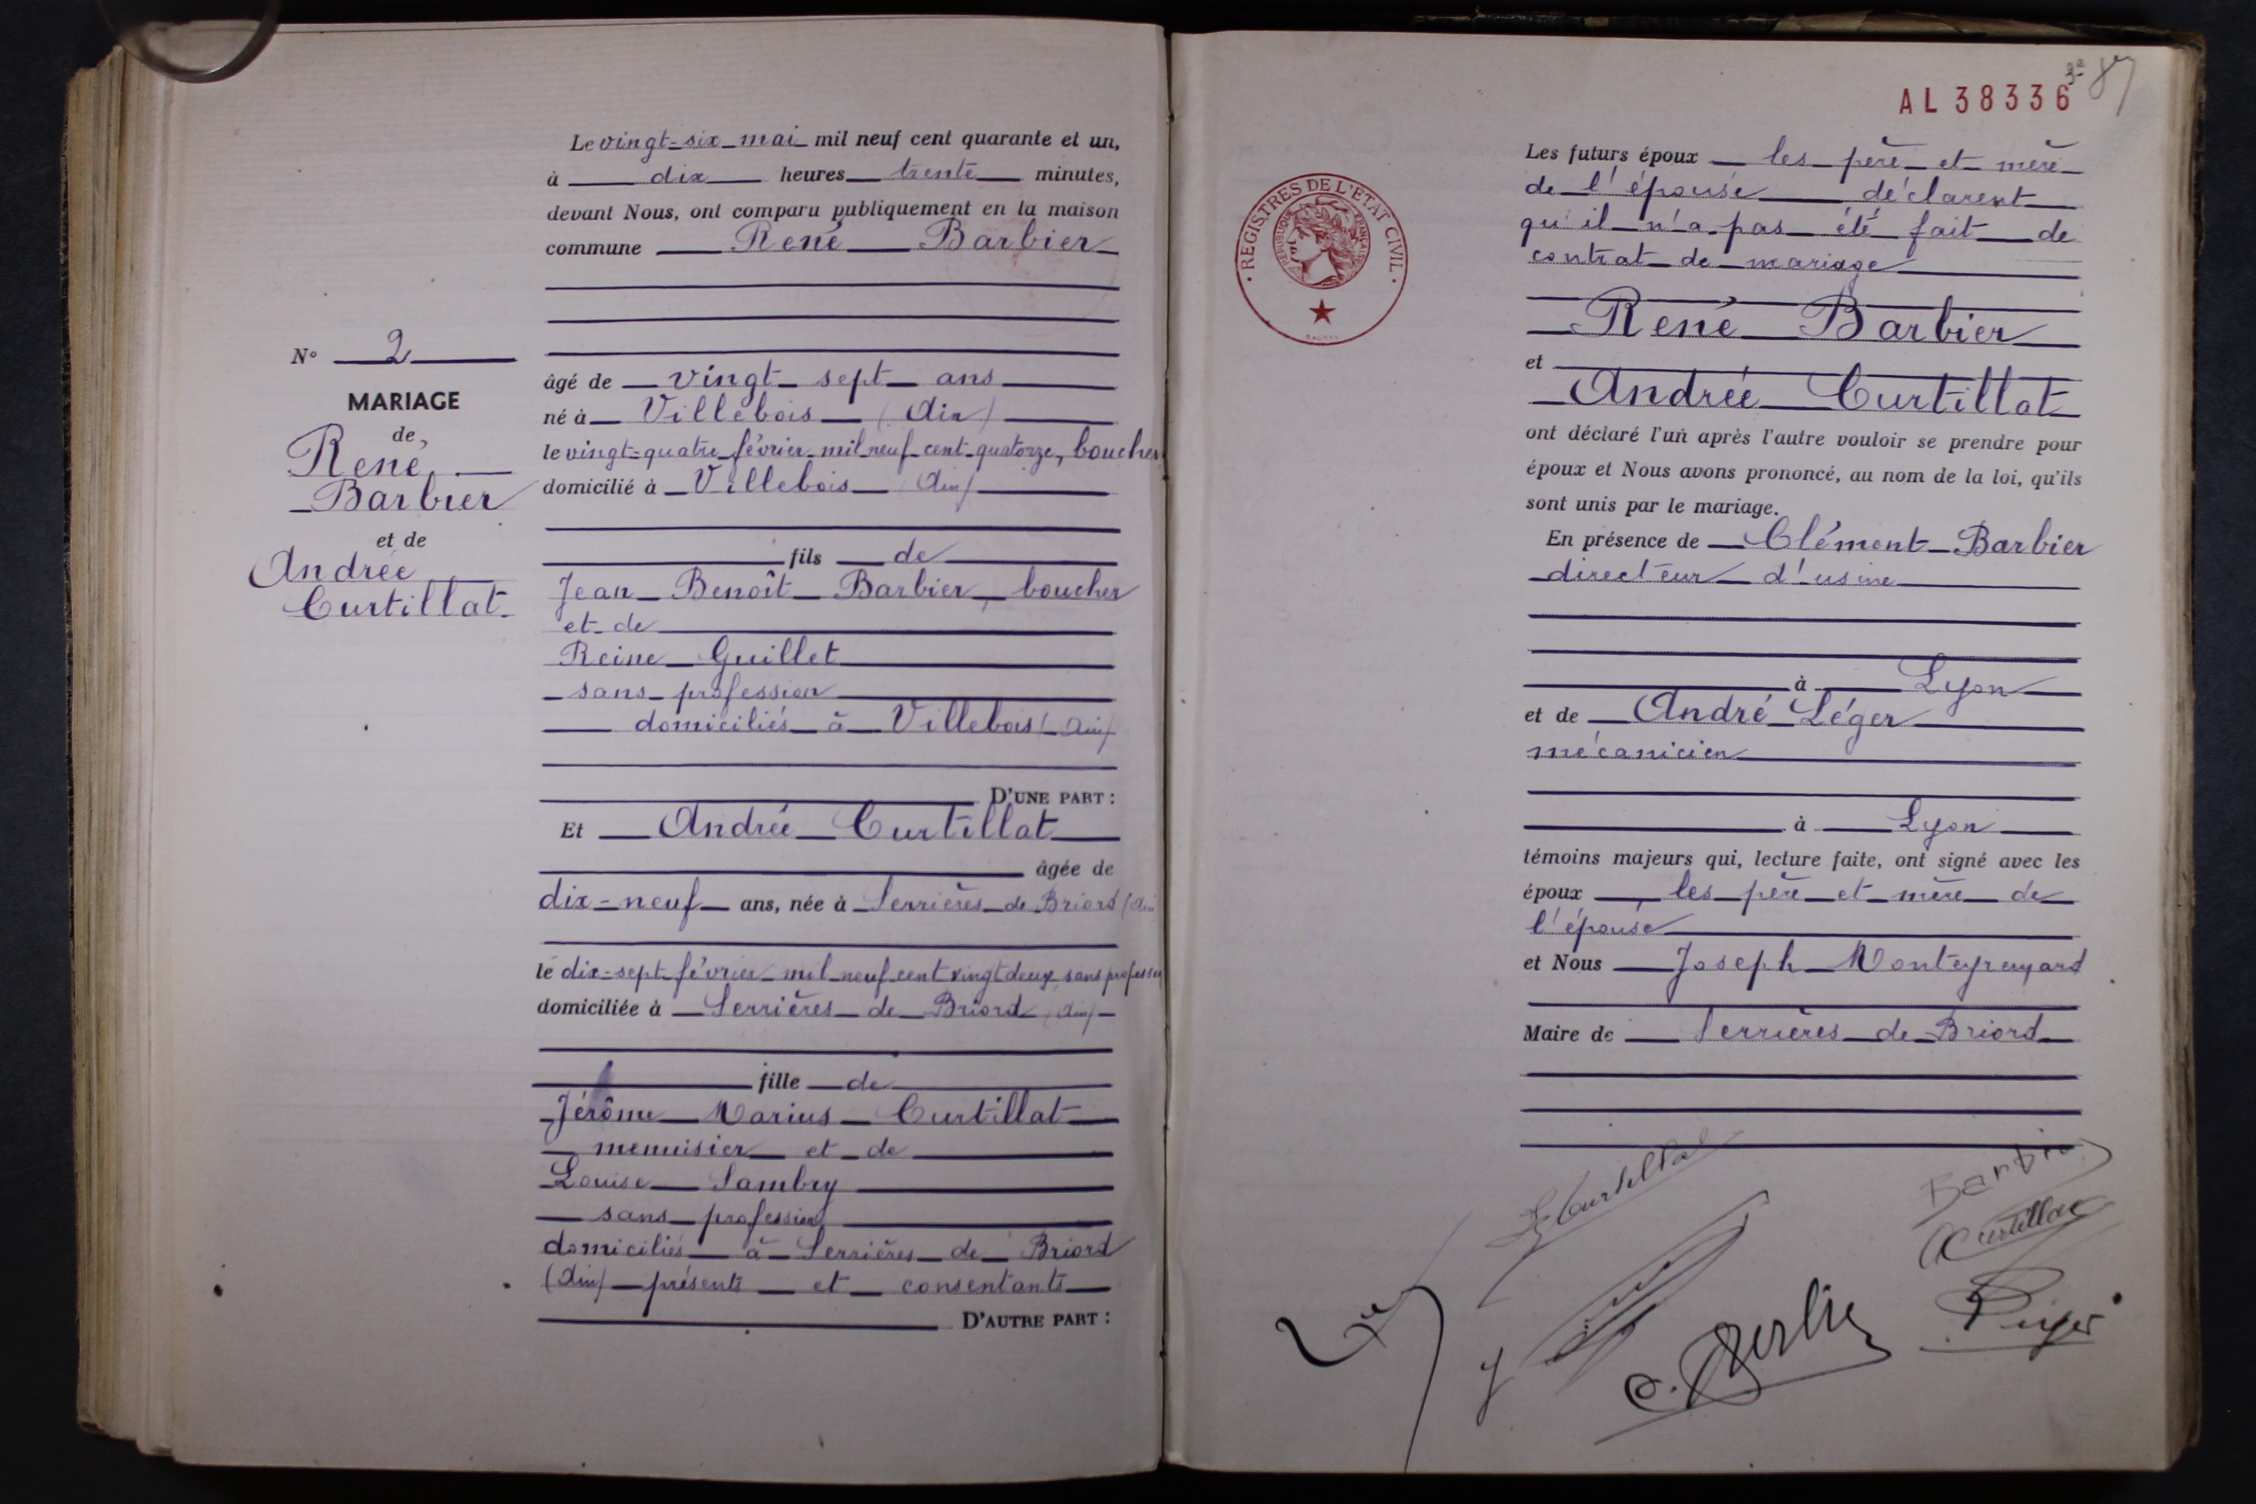 Le vingt-six mai mil neuf cent quarante et un,
à dix heures trente minutes,
devant Nous, ont comparu publiquement en la maison
commune René Barbier
N° 2
MARIAGE
de
René
Barbier
et de
Andrée
Curtillat
âgé de vingt sept ans
né à Villebois (Ain)
le vingt-quatre février mil neuf cent quatorze, boucher
domicilié à Villebois (Ain)
fils de
Jean Benoît Barbier, boucher
et de
Reine Guillet
sans profession
domiciliés à Villebois (Ain)
D'UNE PART :
Et Andrée Curtillat
âgée de
dix-neuf ans, née à Serrières de Briord (Ain
le dix-sept février mil neuf cent vingt deux, sans profession
domiciliée à Serrières de Briord (Ain)
fille de
Jérôme Marius Curtillat
menuisier et de
Louise Sambry
sans profession
domiciliés à Serrières de Briord
(Ain) présents et consentants
D'AUTRE PART :
AL 38336
87
REGISTRES DE L'ÉTAT CIVIL
RÉPUBLIQUE FRANÇAISE
Les futurs époux les père et mère
de l'épouse déclarent
qu'il n'a pas été fait de
contrat de mariage
René Barbier
et
Andrée Curtillat
ont déclaré l'un après l'autre vouloir se prendre pour
époux et Nous avons prononcé, au nom de la loi, qu'ils
sont unis par le mariage.
En présence de Clément Barbier
directeur d'usine
à Lyon
et de André Léger
mécanicien
à Lyon
témoins majeurs qui, lecture faite, ont signé avec les
époux, les père et mère de
l'épouse
et Nous Joseph Monteyremard
Maire de Serrières de Briord
L Curtillat
Barbier
A Curtillat